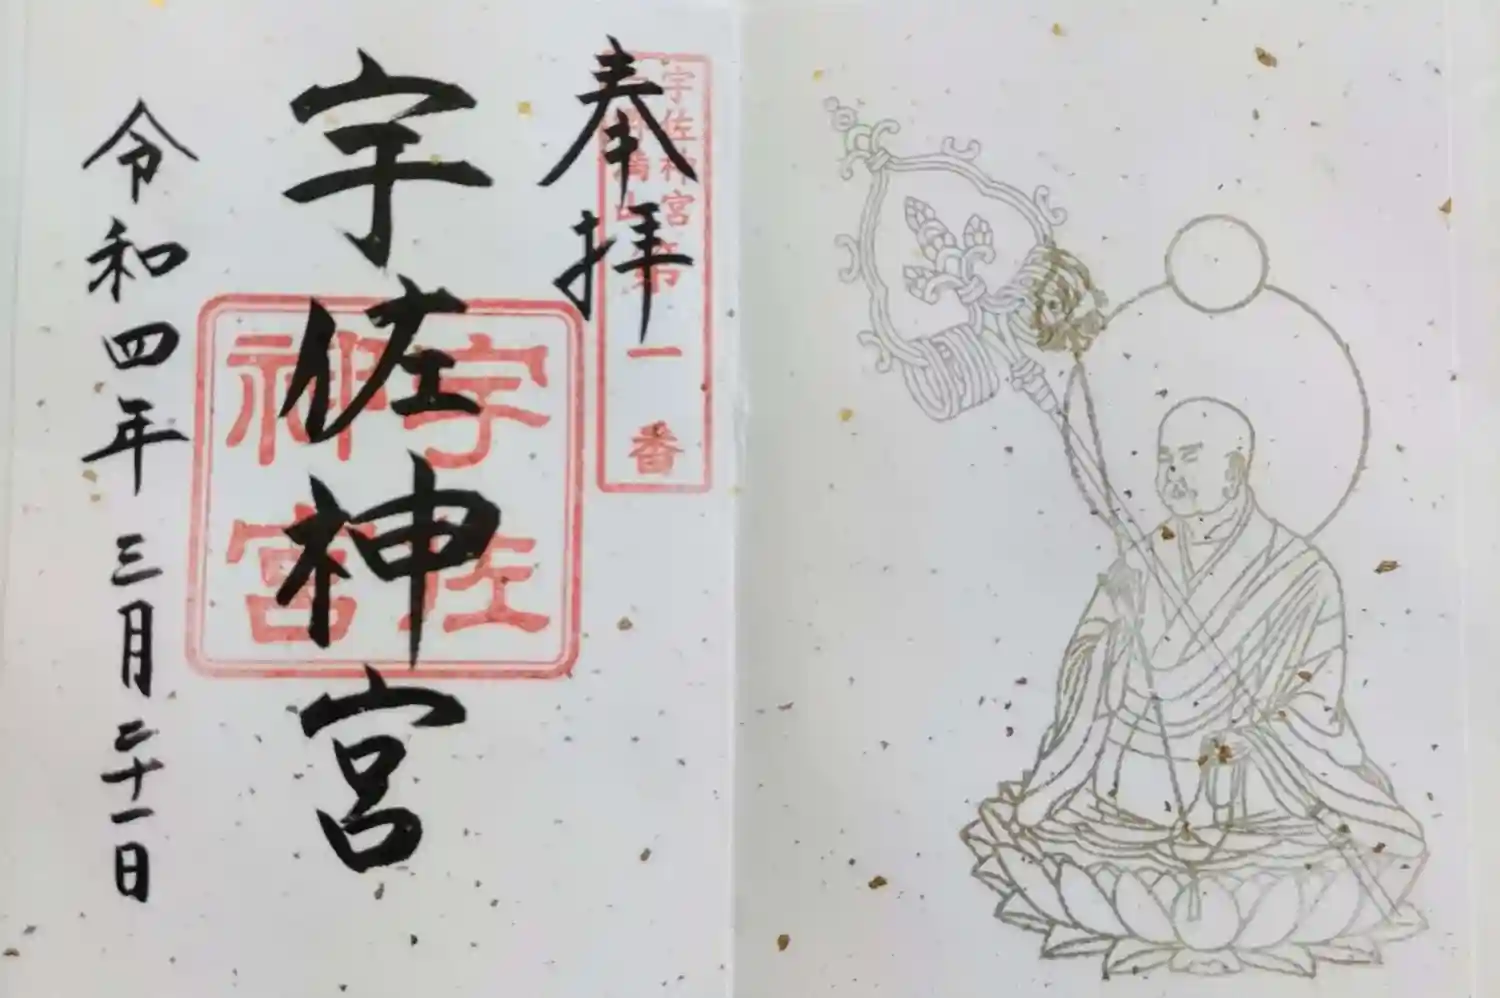 奉拝
宇佐神宮
令和四年三月二十一日
宇佐神宮
第一番
宇佐神宮